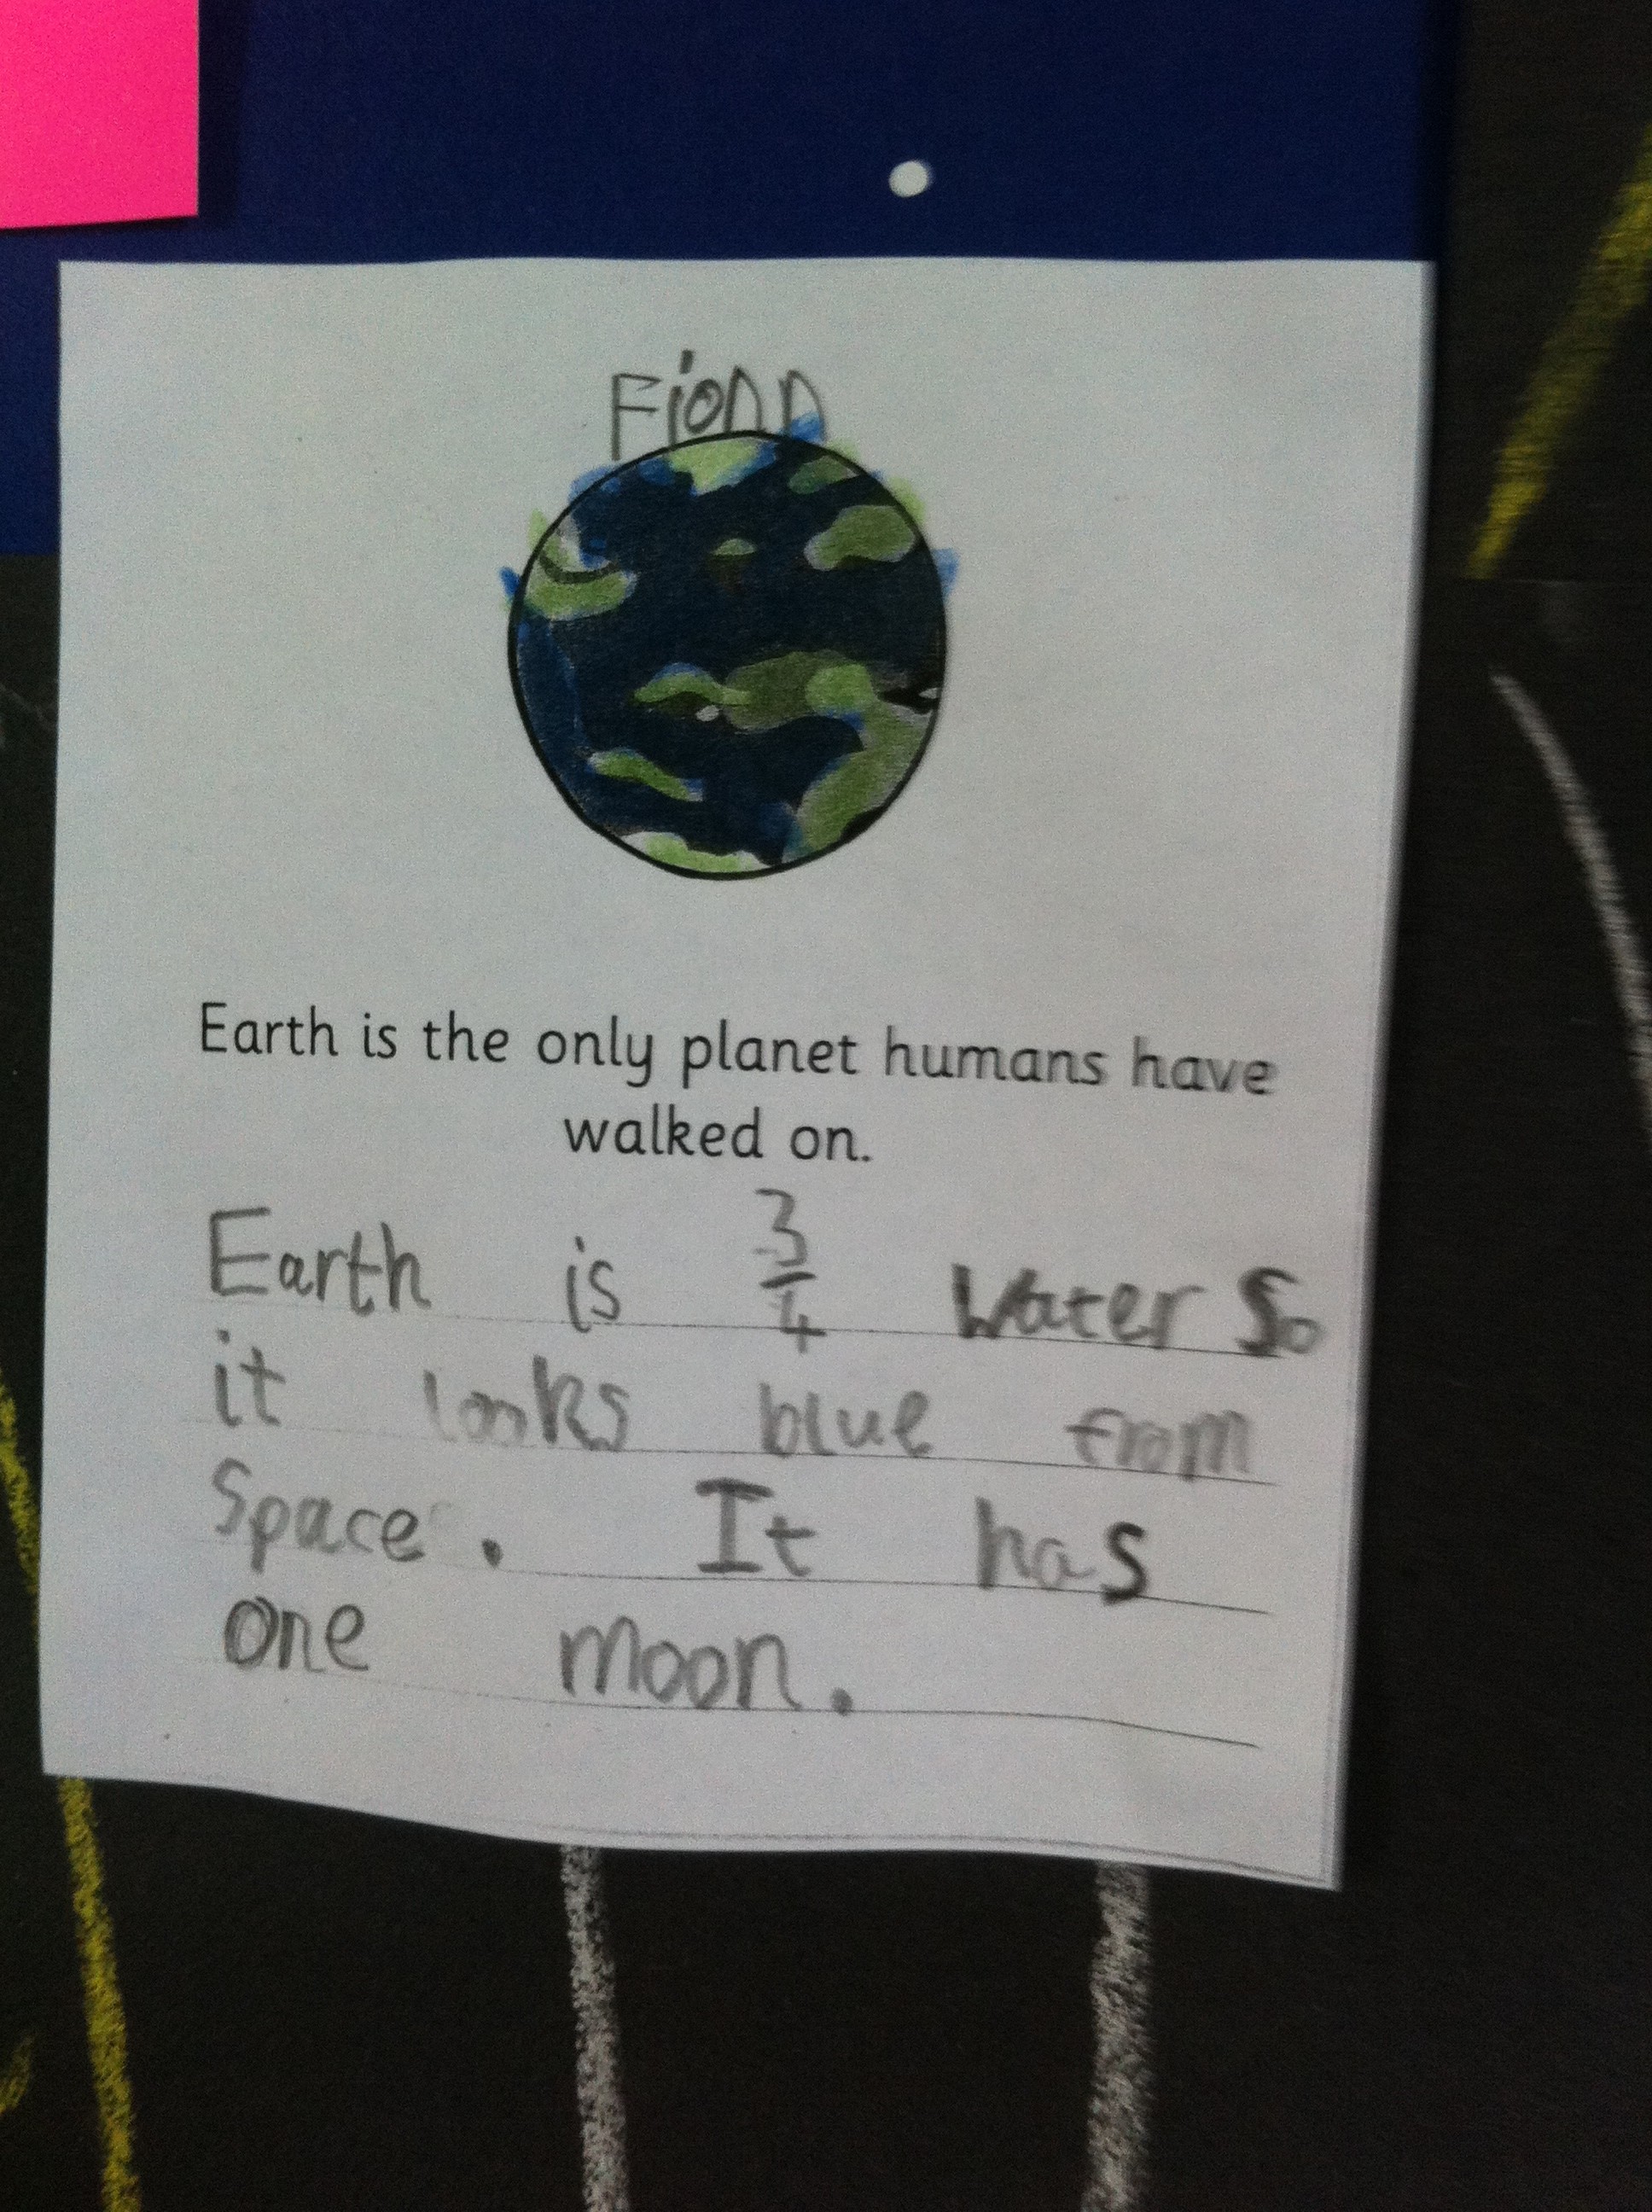 Fionn
Earth is the only planet humans have
walked on.
Earth is 3/4 Water So
it looks blue from
Space. It has
one moon.